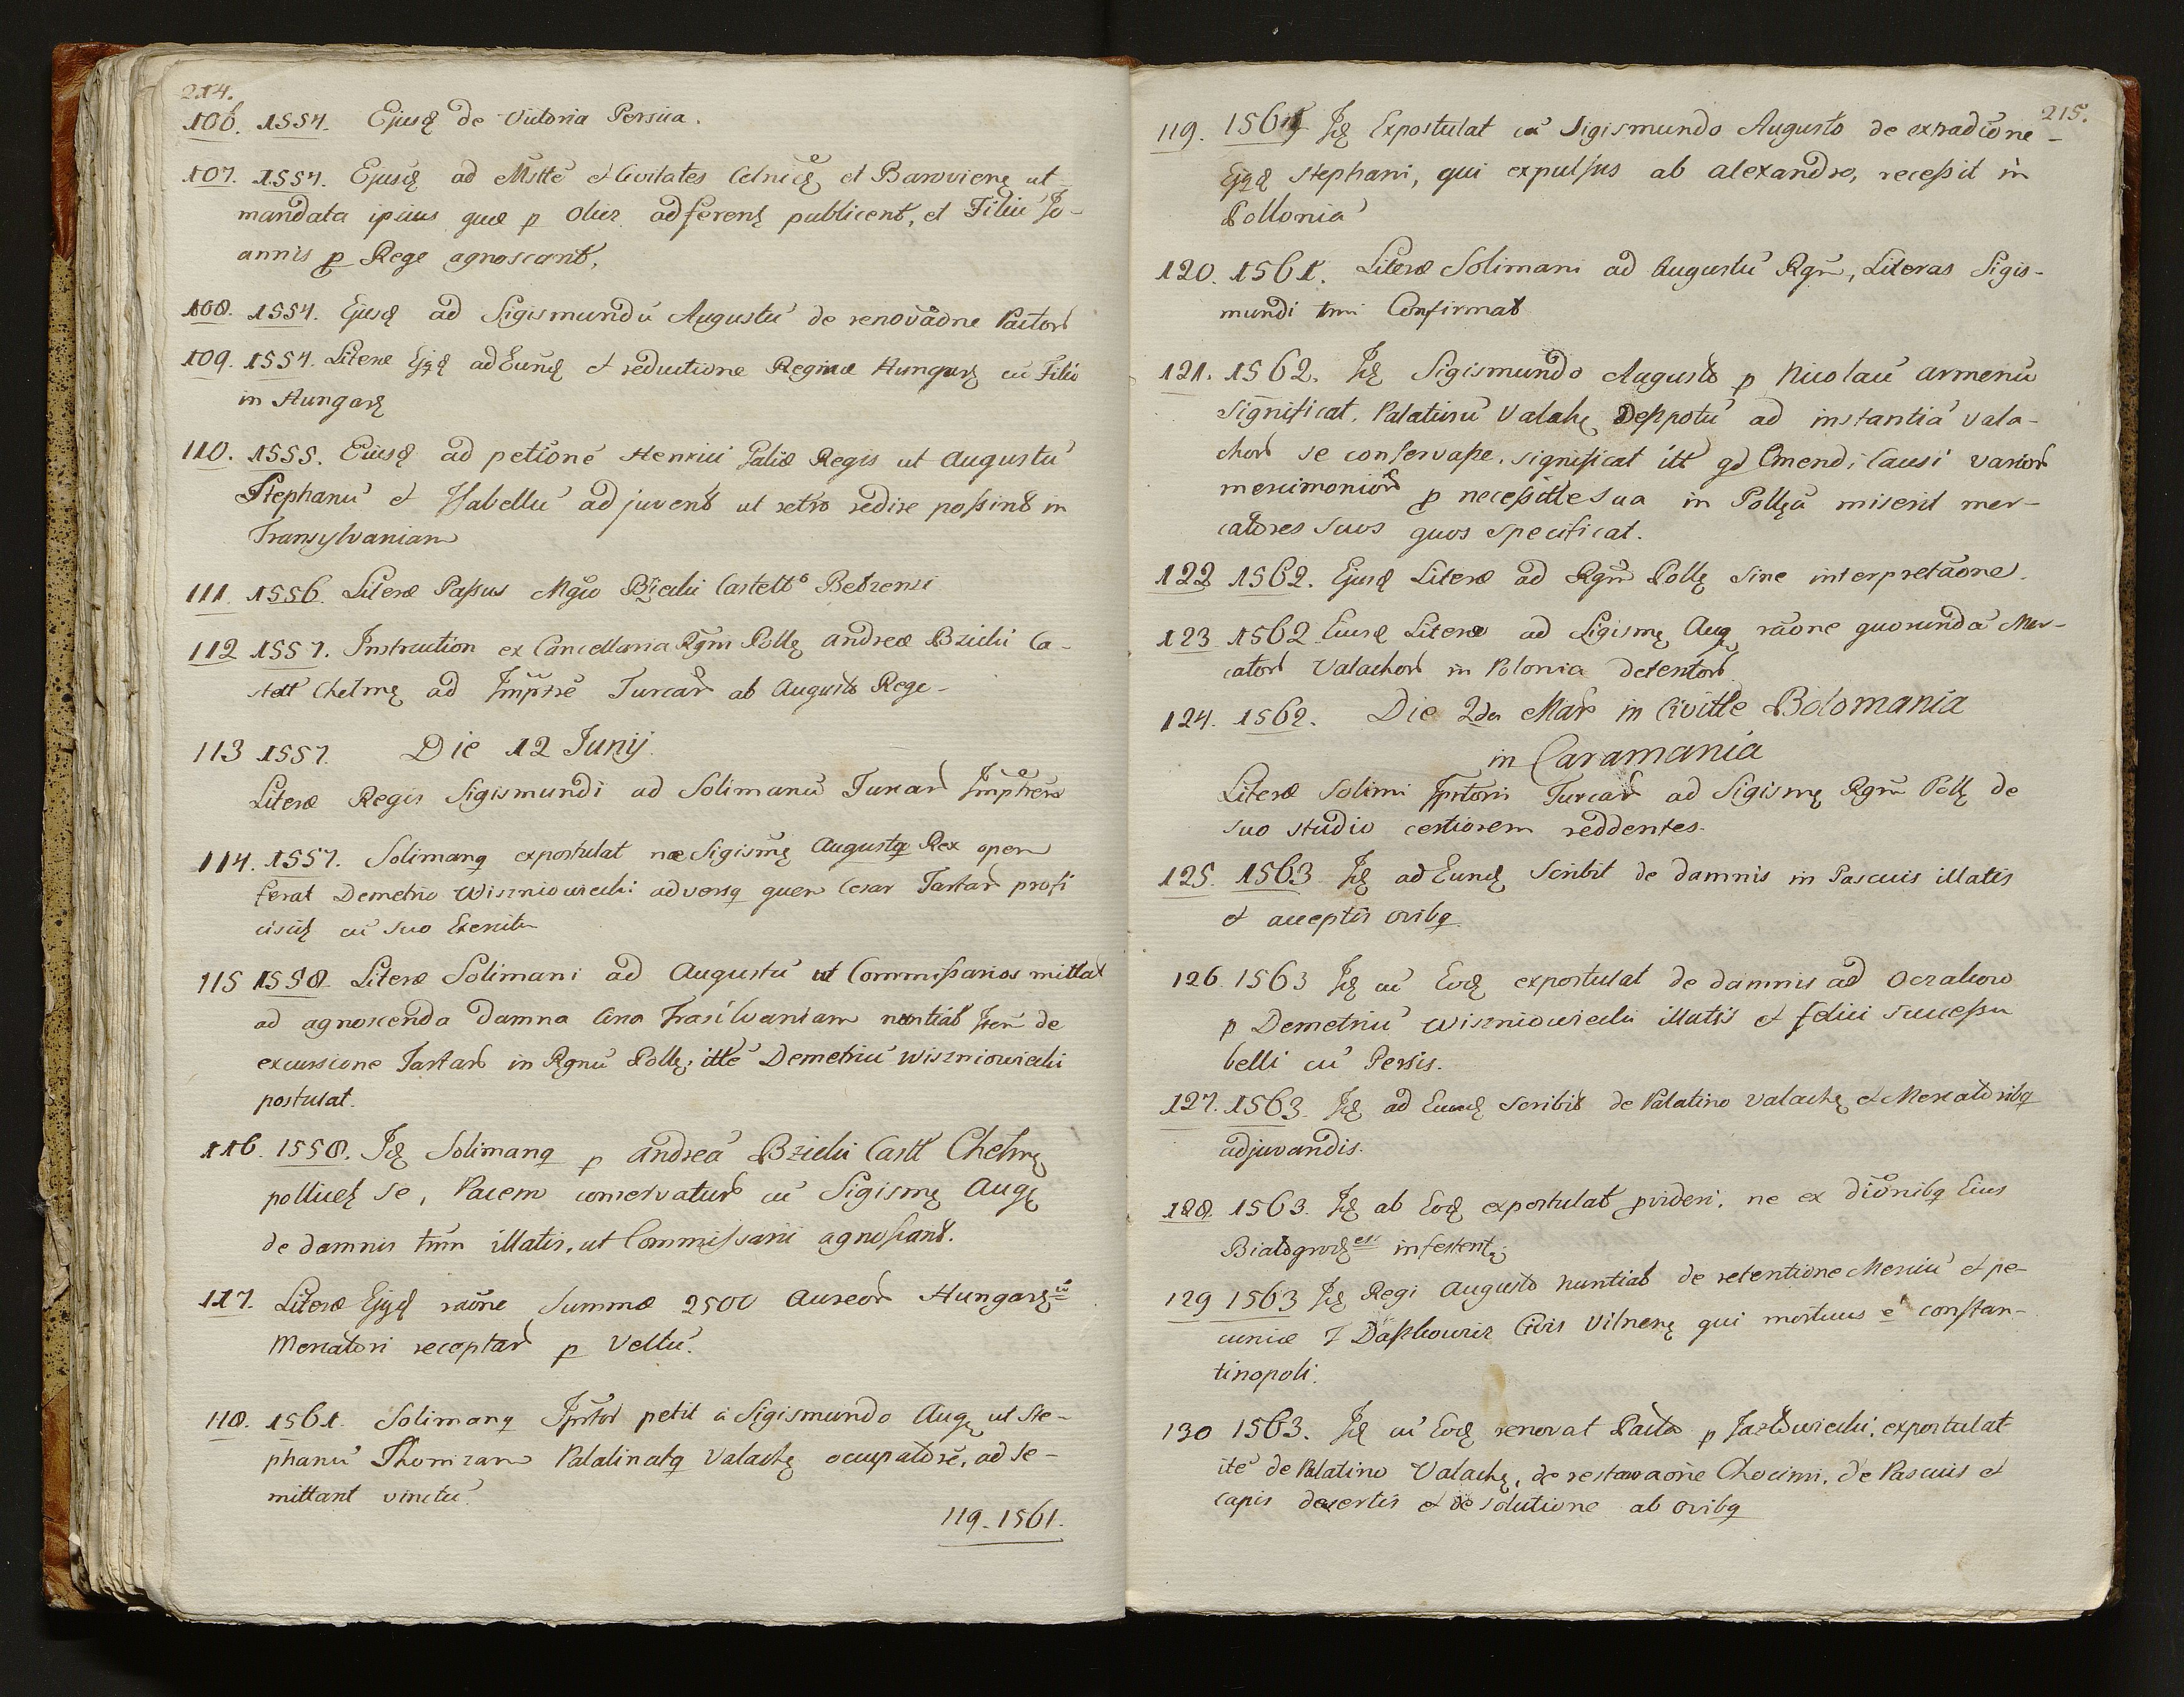 214.
106. 1554. Ejusq de Victoria Persica.
107. 1554. Ejusq ad Mstte et Civitates et ut
mandata ipsius quæ p adferent publicent, et Filiu Jo-
annis p Rege agnoscant.
108. 1554. Ejusq ad Sigismundu Augustu de renovaone Pactor
109. 1554. Literæ Ejq ad Eund et reductione Reginæ Hungar cu Filio
in Hungar
110. 1555. Eiusq ad petitione Henrici Galiæ Regis ut Augustu
Stephanu et Isabellu adjuvent ut retro redire possint in
Transylvaniam
111. 1556. Literæ Passus Mgco Bzicki Castell
112 1557. Instruction ex Cancellaria Rgni Polle andreæ Bzicki Ca-
stell Chelme ad Imptre Turcar ab Augusto Rege-
113 1557. Die 12 Junij.
Literæ Regis Sigismundi ad Solimanu Turcar
114. 1557. Solimanq expostulat næ Sigisme Augustq Rex opem
ferat Demetrio Wiszniowiecki adversq quem Cesar Tartar profi
cisit cu suo Exercitu
115 1558. Literæ Solimani ad Augustu ut Commissarios mittat
ad agnoscenda damna Circa Trasilvaniam nuntiat Item de
excursione Tartar in Rgnu Polle, itte Demetriu Wiszniowiecki
postulat.
116. 1558. Id Solimanq p andrea Bzicki Castt Chelme
pollicet se, Pacem conservatur cu Sigisme Auge
de damnis tmn illatis, ut Commissarii agnoscant.
117. Literæ Ejq raone Summæ 2500 Aureor Hungar
Mercatori receptar p Veltu.
118. 1561. Solimanq Iprtor petit à Sigismundo Auge ut Ste-
phanu Thomzam Palatinatq Valache occupatore, ad se-
mittant vinctu.
119. 1561.
215.
119. 1561 Id Expostulat cu Sigismundo Augusto de extradione-
Ejq Stephani, qui expulsus ab alexandro, recessit in
Pollonia
120. 1561. Literæ Solimani ad Augustu Rgm, Literas Sigis-
mundi tmn Confirmat
121. 1562. Id Sigismundo Augusto p Nicolau armenu
significat. Palatinu Valah Desspotu ad instantia Vala-
chor se conservasse, significat itt qd Emendi Causi varior
mercimonior p necessitte sua in Polla miserit mer-
catores suos quos specificat.
122 1562. Ejusq Literæ ad Rgm Polle sine interpretaone.
123 1562 Eiusq Literæ ad Sigisme Aug raone quorunda Mer-
cator Valachor in Polonia detentor.
124. 1562. Die 2da Mar in Civitte Bolomania
in Caramania
Literæ Solimi Iprtoris Turcar ad Sigisme Rgm Polle de
suo studio certiorem reddentes.
125. 1563 Id ad Eund Scribit de damnis in Pascuis illatis
et acceptis ovibq
126. 1563 Id cu Eod expostulat de damnis ad Oczakow
p Demetriu Wiszniowiecki illatis et felici Successu
belli cu Persis.
127. 1563. Id ad Eund scribit de Palatino Valache et Mercatoribq
adjuvandis.
128. 1563. Id ab Eod expostulat pvideri, ne ex dionibq Eius
infestent.
129 1563 Id Regi Augusto nuntiat de retentione Merciu et pe-
cuniæ Civis Vilnene qui mortuus e constan-
tinopoli.
130 1563. Id cu Eod renovat Pacta p Jazlowiecki, expostulat
ite de Palatino Valache, de restauraone Chocimi, de Pascuis et
capis desertis et de solutione ab ovibq